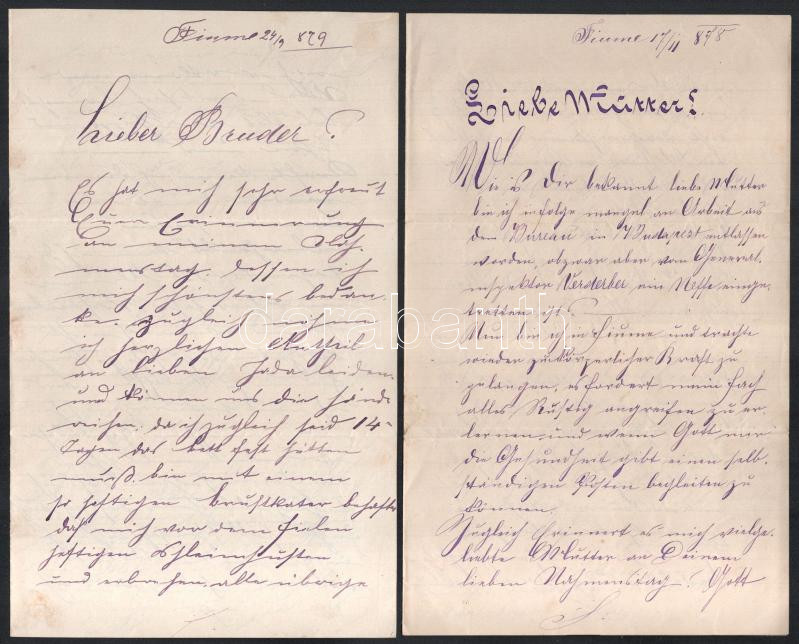 Fiume 24/9 879
Lieber Bruder!
Es hat mich sehr erfreut
Euere Erinnerung
an meinem Nah-
menstag. dessen ich
mich schönstens bedan-
ke. zugleich nehme
ich herzlichen Antheil
an lieben leiden
und können uns die Hände
reichen, da ich zugleich seid 14-
Tagen das bett fest hütten
muß. bin mit einem
so heftigen brustkater behaftet
daß mich vor dem fielen
heftigen Schleimhusten
und erbrechen, alle übrige
Fiume 17/11 878
Liebe Mutter!
Wie es Dir bekannt liebe Mutter
bin ich infolge mangel an Arbeit aus
dem Bureau in Budapest entlassen
worden, obzwar aber vom General-
inspektor Verderber ein Neffe einge-
tretten ist.
Nun bin ich in Fiume und trachte
wieder zu körperlicher Kraft zu
gelangen, es fordert mein Fach
alles Rüstig angreifen zu er-
lernen und wenn Gott mir
die Gesundheit gibt einen selb-
ständigen Posten begleiten zu
können.
Zugleich Erinnert es mich vielge-
liebte Mutter an Deinem
lieben Nahmenstag. Gott
darabanth